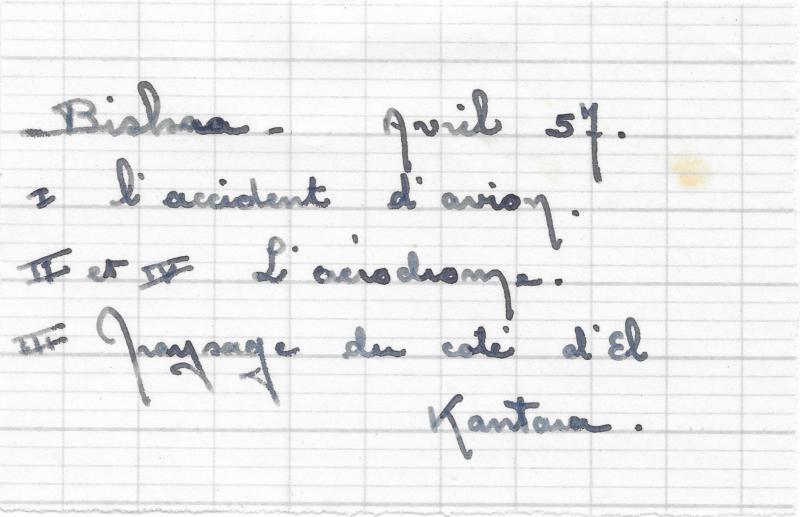 Biskra - Avril 57.
I l'accident d'avion.
II et IV L'aérodrome.
III Paysage du coté d'El
Kantara.